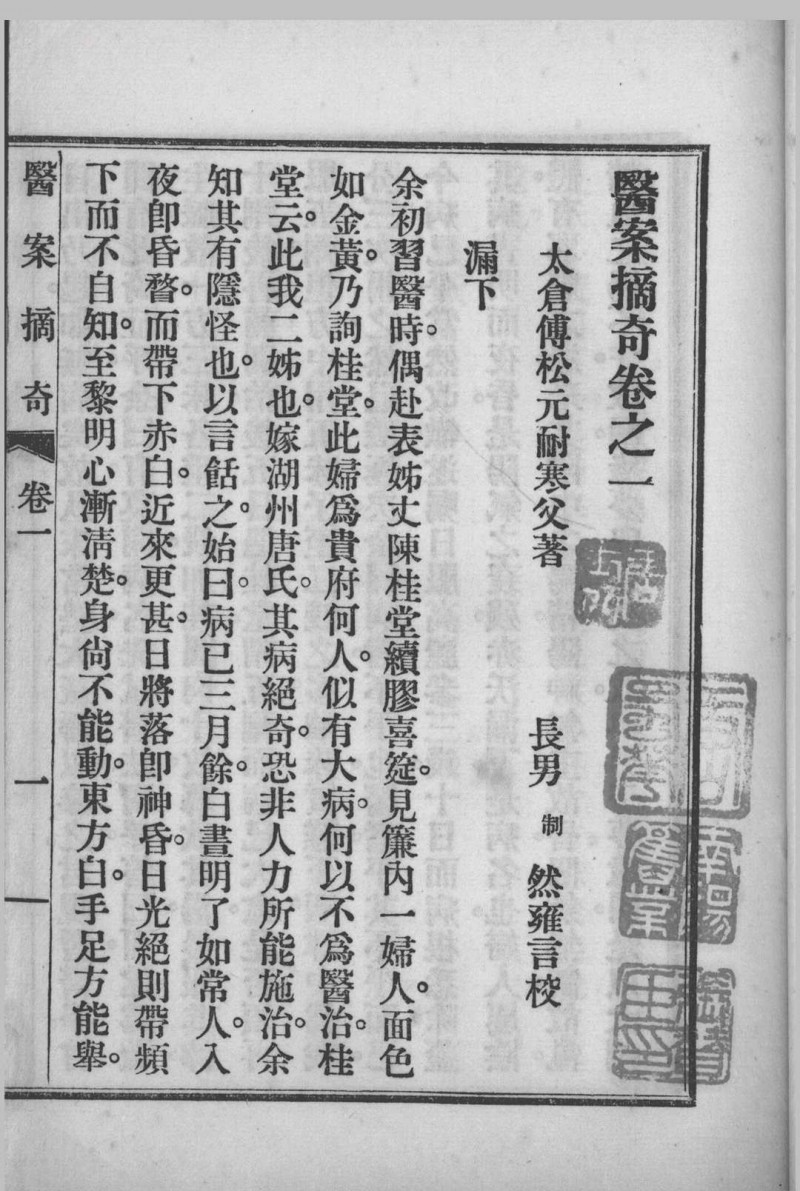 醫案摘奇卷之一
太倉傅松元耐寒父著
長男 制 然雍言校
漏下
余初習醫時。偶赴表姊丈陳桂堂續膠喜筵。見簾內一婦人。面色
如金黃。乃詢桂堂。此婦爲貴府何人。似有大病。何以不爲醫治。桂
堂云。此我二姊也。嫁湖州唐氏。其病絕奇。恐非人力所能施治。余
知其有隱怪也。以言餂之。始曰。病已三月餘。白晝明了如常人。入
夜卽昏瞀。而帶下赤白。近來更甚。日將落卽神昏。日光絕則帶頻
下而不自知。至黎明心漸淸楚。身尙不能動。東方白。手足方能舉。
醫案摘奇 卷一 一